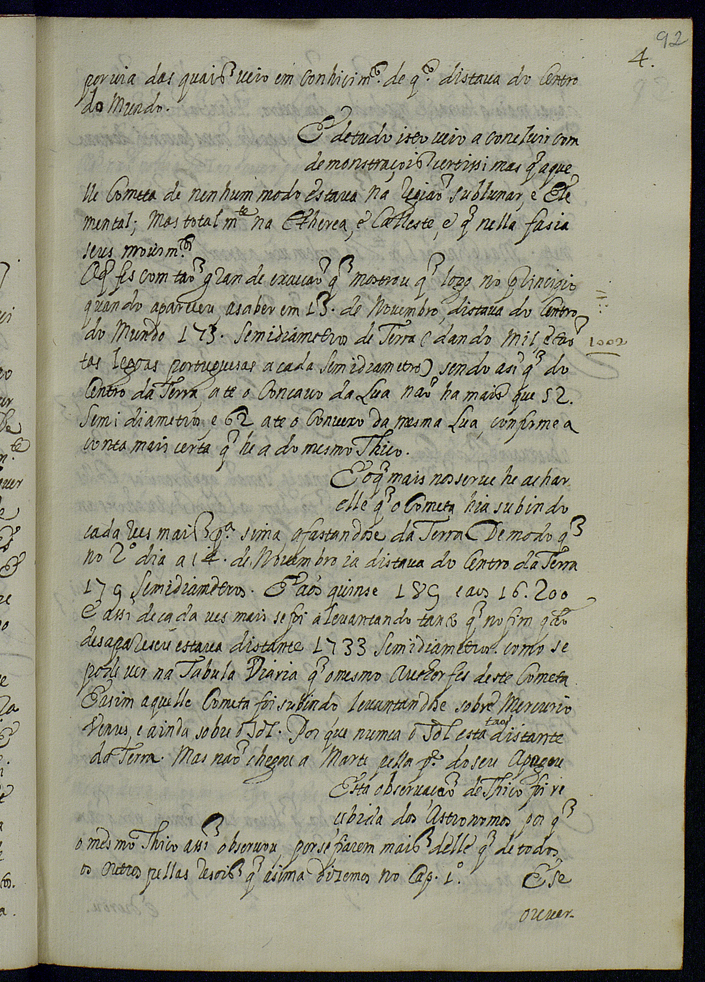 92
4.
por via das quais veio em conhicimto de qto distava do Centro
do Mundo.
E de tudo isto veio a concluir com
demonstraçois certissimas q aque
lle Cometa de nenhum modo estava na Região sublunar, e Ele
mental; Mas totalmte na Etherea, e Cæleste, e q nella fasia
seus movimtos
O q fes com tão grande execução q mostrou q logo no principio
quando apareceu, a saber em 13. de Novembro, distava do Centro
do Mundo 173. Semidiametros de Terra (dando mil e
tas legoas portuguesas a cada semidiametro) sendo assi q do
1002
Centro da Terra ate o Concavo da Lua não ha mais que 52.
Semidiametros e 62 ate o Convexo da mesma Lua, conforme a
conta mais certa q he a do mesmo Thico.
E o q mais nos serve he achar
elle q o Cometa hia subindo
cada ves mais pa sima afastandose da Terra. De modo q
no 2o dia a 14. de Novembro ia distava do Centro da Terra
179 Semidiametros. E aos quinse 189 e aos 16. 200
E assi de cada ves mais se foi alevantando tanto q no fim qdo
desapareseu estava distante 1733 Semidiametros como se
pode ver na Tabula Diaria q o mesmo Author fes deste Cometa
E assim aquelle Cometa foi subindo levantandose sobre Mercurio
Venus, e ainda sobre o Sol. Por que nunca o Sol esta tão distante
da Terra. Mas não chegou a Marte pella pte do seu Apogeu
Esta observação de Thico foi re
cebida dos Astronomos por q
o mesmo Thico assi observou por se fiarem mais delle q de todos
os outros pellas resois q asima dizemos no Cap. 1o. E se
ouver